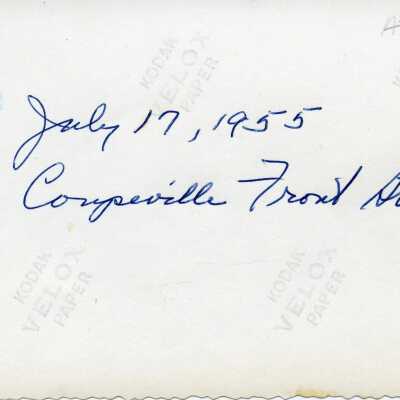 July 17, 1955
Coupeville Front
KODAK
VELOX
PAPER
KODAK
VELOX
PAPER
KODAK
VELOX
PAPER